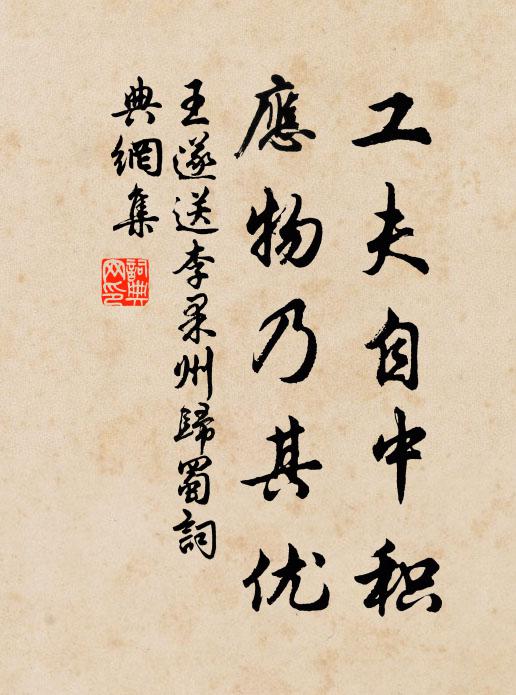 工夫自中积
應物乃其优
王遂送李果州歸蜀詞
典網集
詞典网印